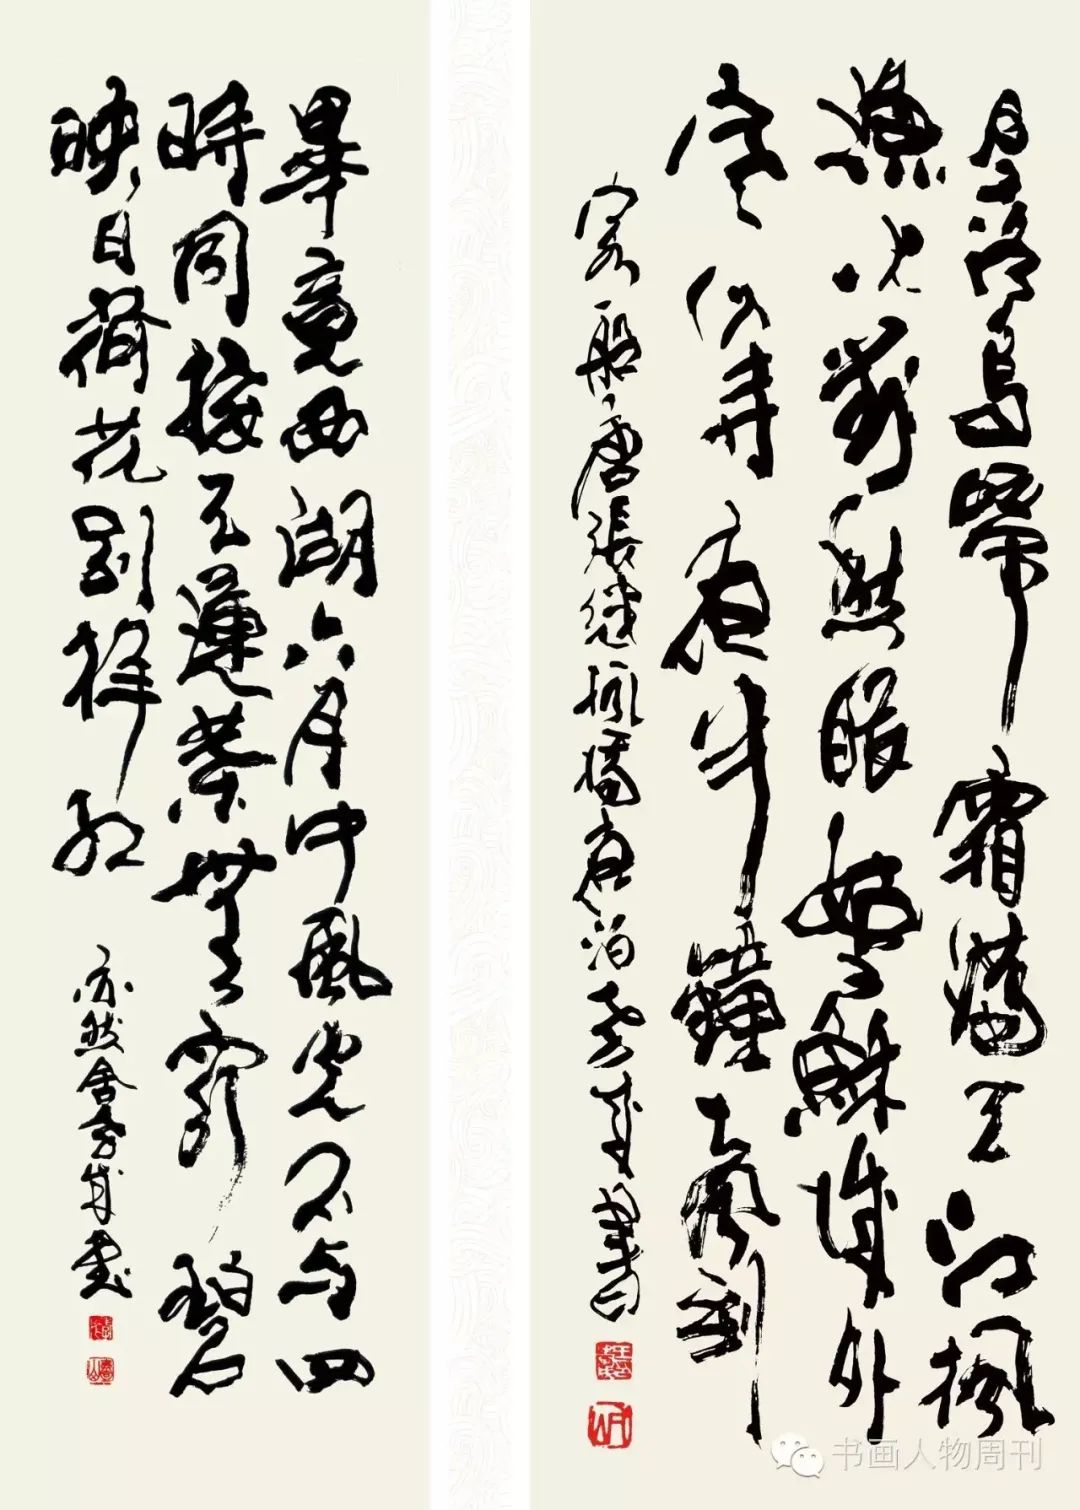 月落烏啼霜滿天江楓
漁火對愁眠姑蘇城外
寒山寺夜半鐘聲到
客船唐張繼楓橋夜泊書
畢竟西湖六月中風光不与四
時同接天蓮葉無窮碧
映日荷花別樣紅
亦然舍書
书画人物周刊